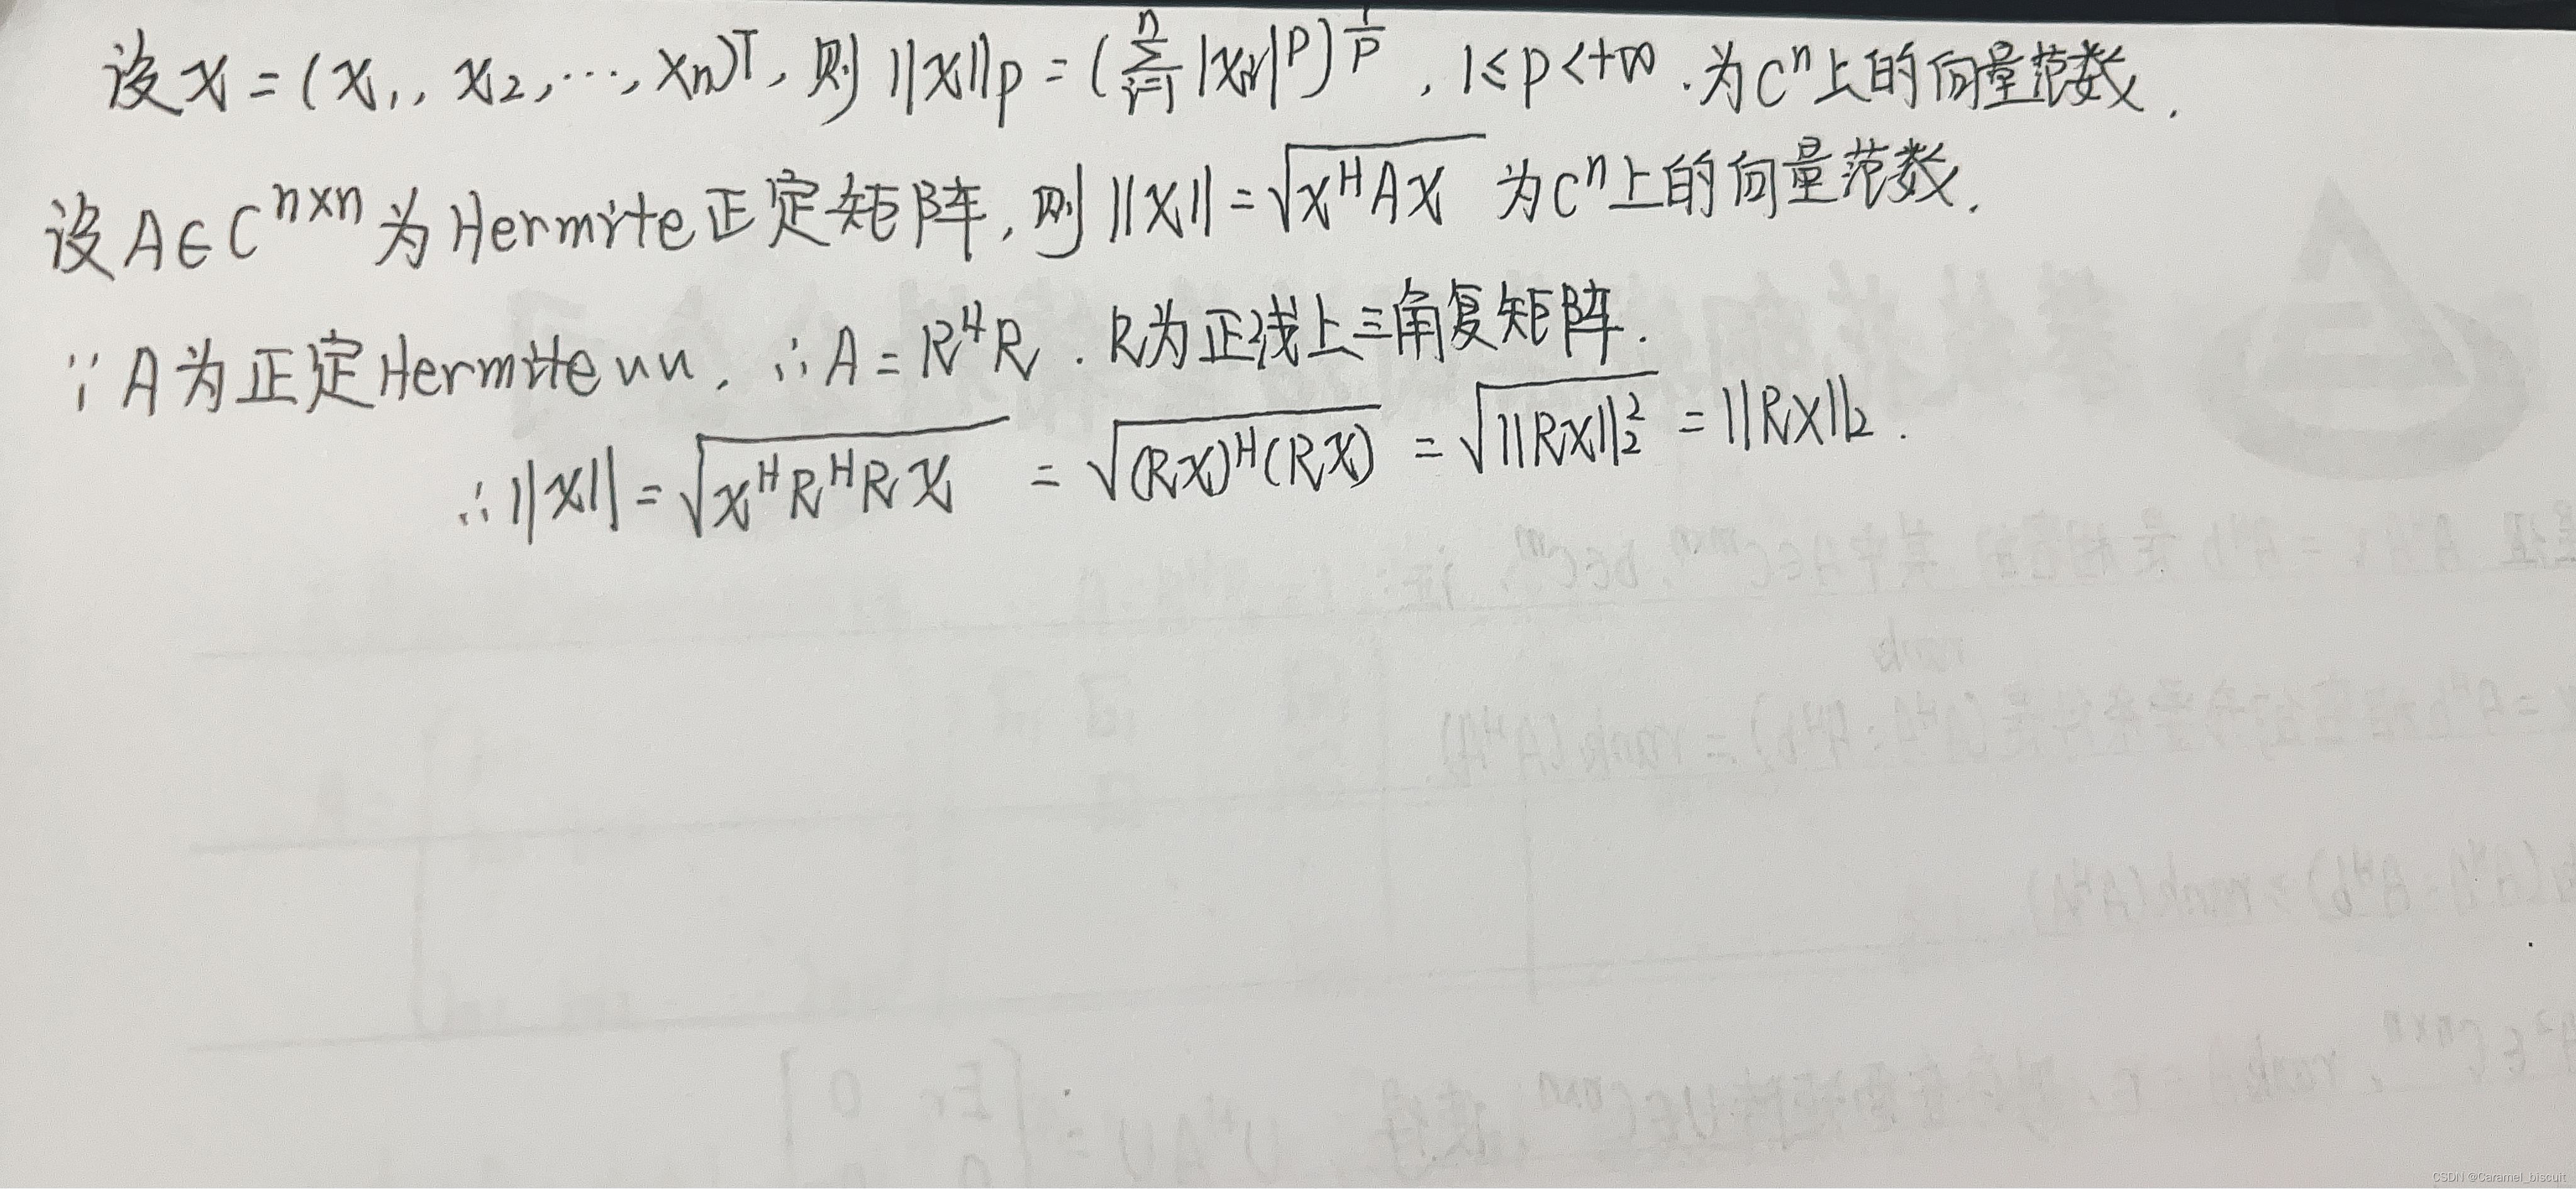 设x=(x₁, x₂, ⋯, xₙ)ᵀ, 则 ||x||ₚ = (∑ᵢ₌₁ⁿ |xᵢ|ᵖ)^(1/p), 1≤p<+∞. 为Cⁿ上的向量范数.
设A∈Cⁿˣⁿ为Hermite正定矩阵, 则||x||=√(xᴴAx) 为Cⁿ上的向量范数.
∵A为正定Hermite, ∴A=RᴴR. R为正线上三角复矩阵.
∴||x||=√(xᴴRᴴRx) = √((Rx)ᴴ(Rx)) = √(||Rx||₂²) = ||Rx||₂.
CSDN @Caramel_biscuit